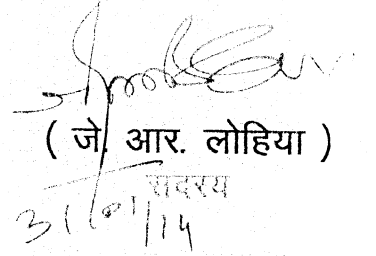 ( जे. आर. लोहिया )
सदस्य
31/01/14